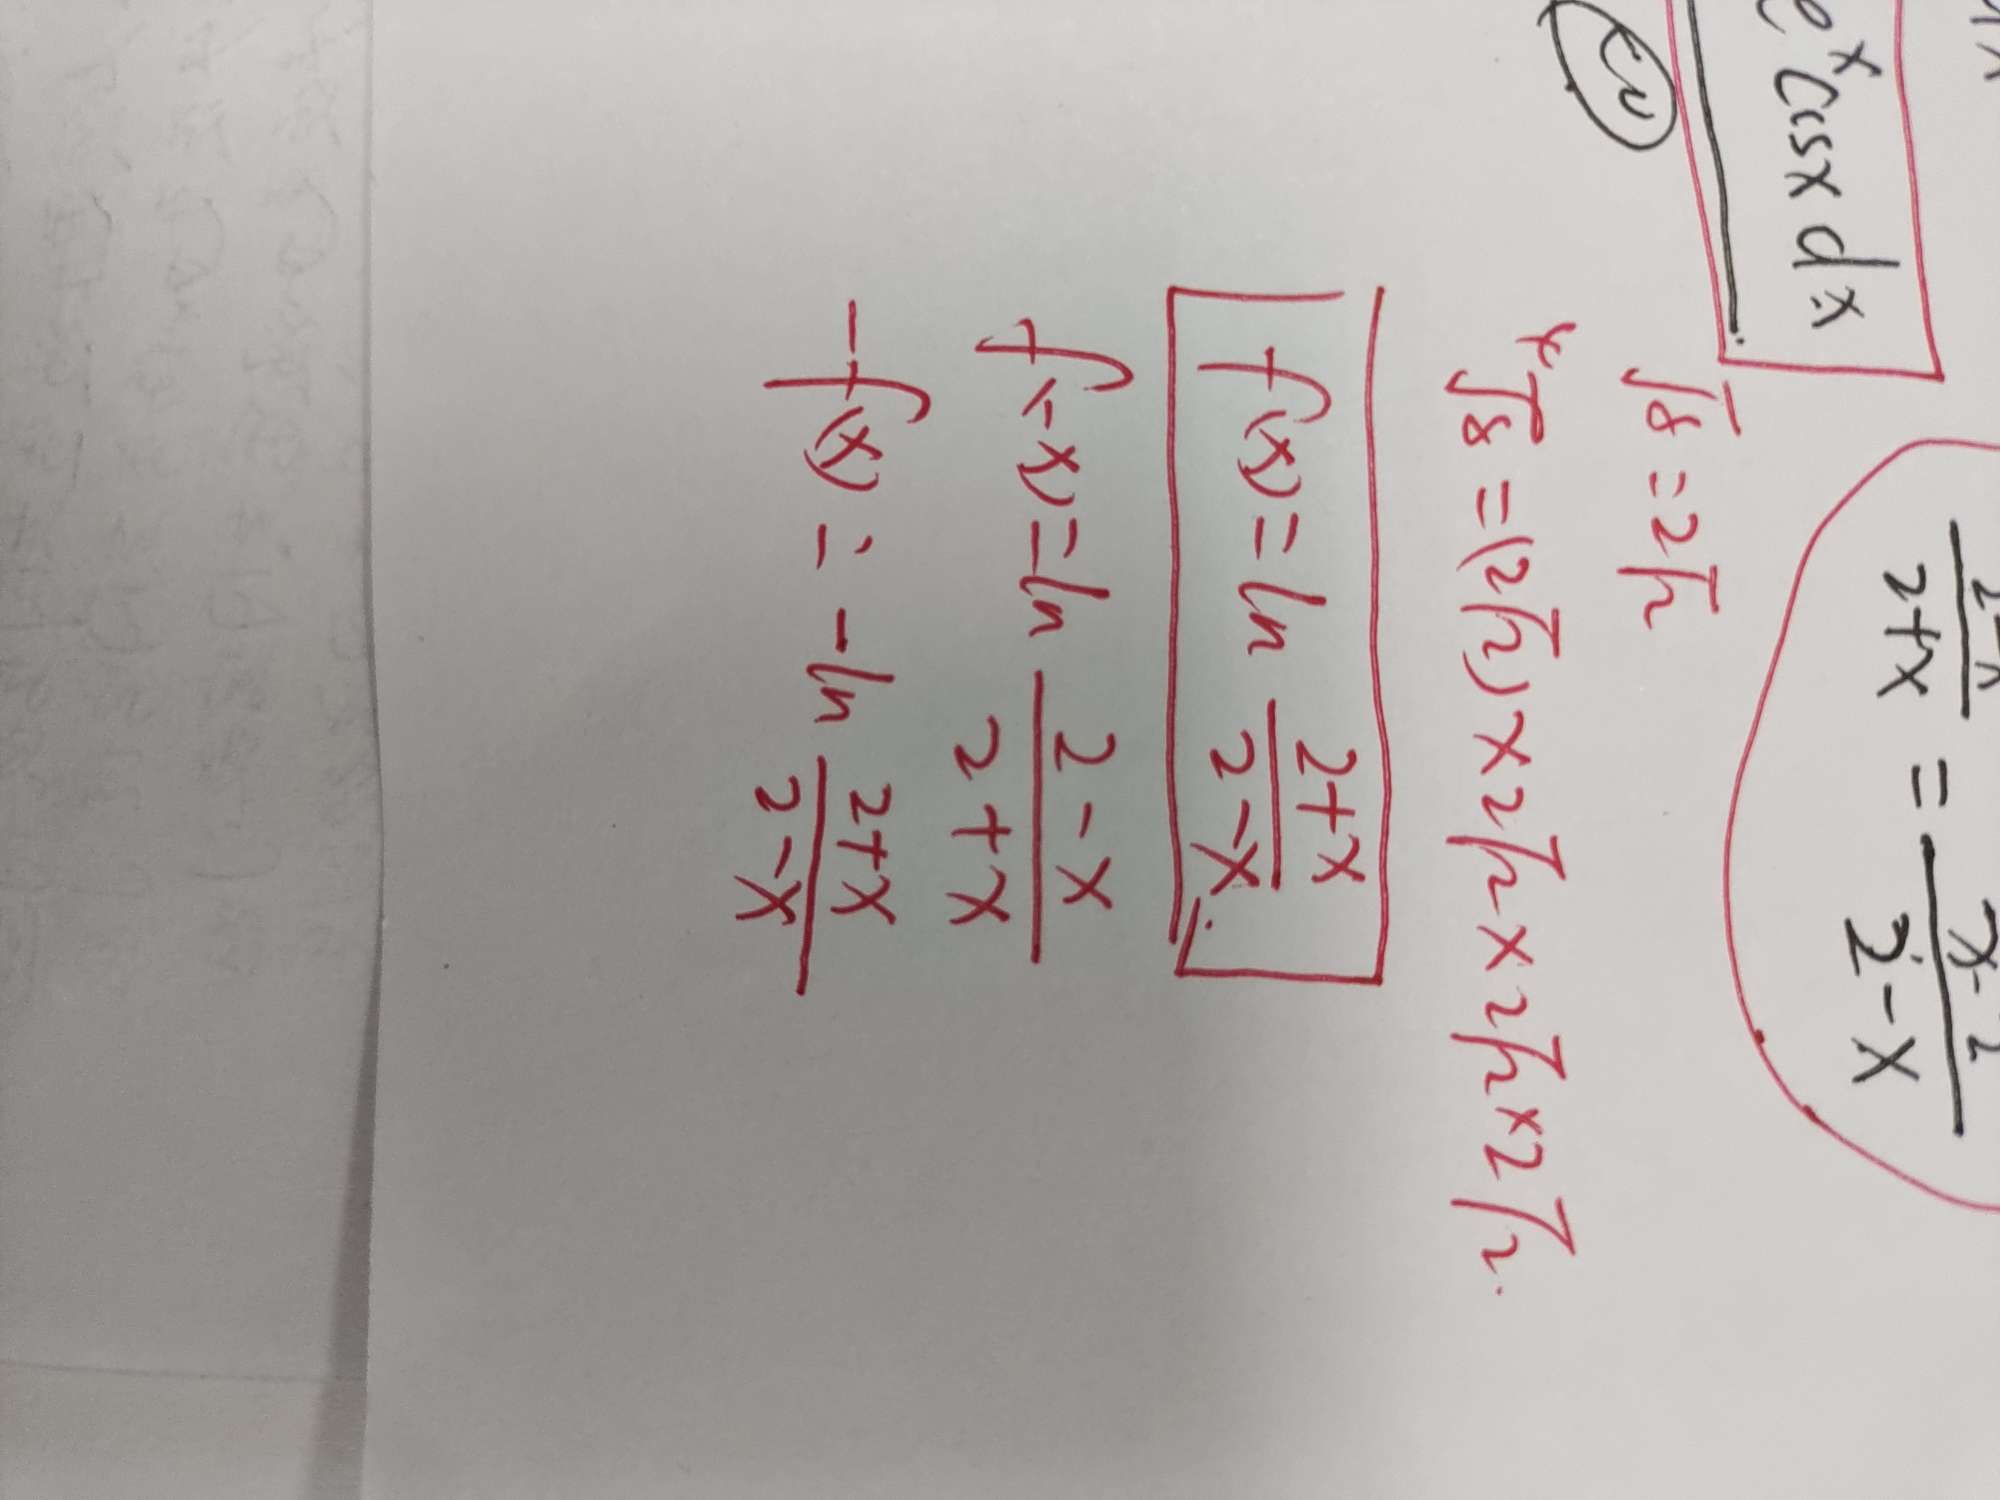 e^x cosx dx
2+x = 2-x
√8 = 2√2
√8 = (2√2) x 2√2 x 2√2 x 2√2.
f(x) = ln (2+x)/(2-x)
f(-x) = ln (2-x)/(2+x)
-f(x) = -ln (2+x)/(2-x)